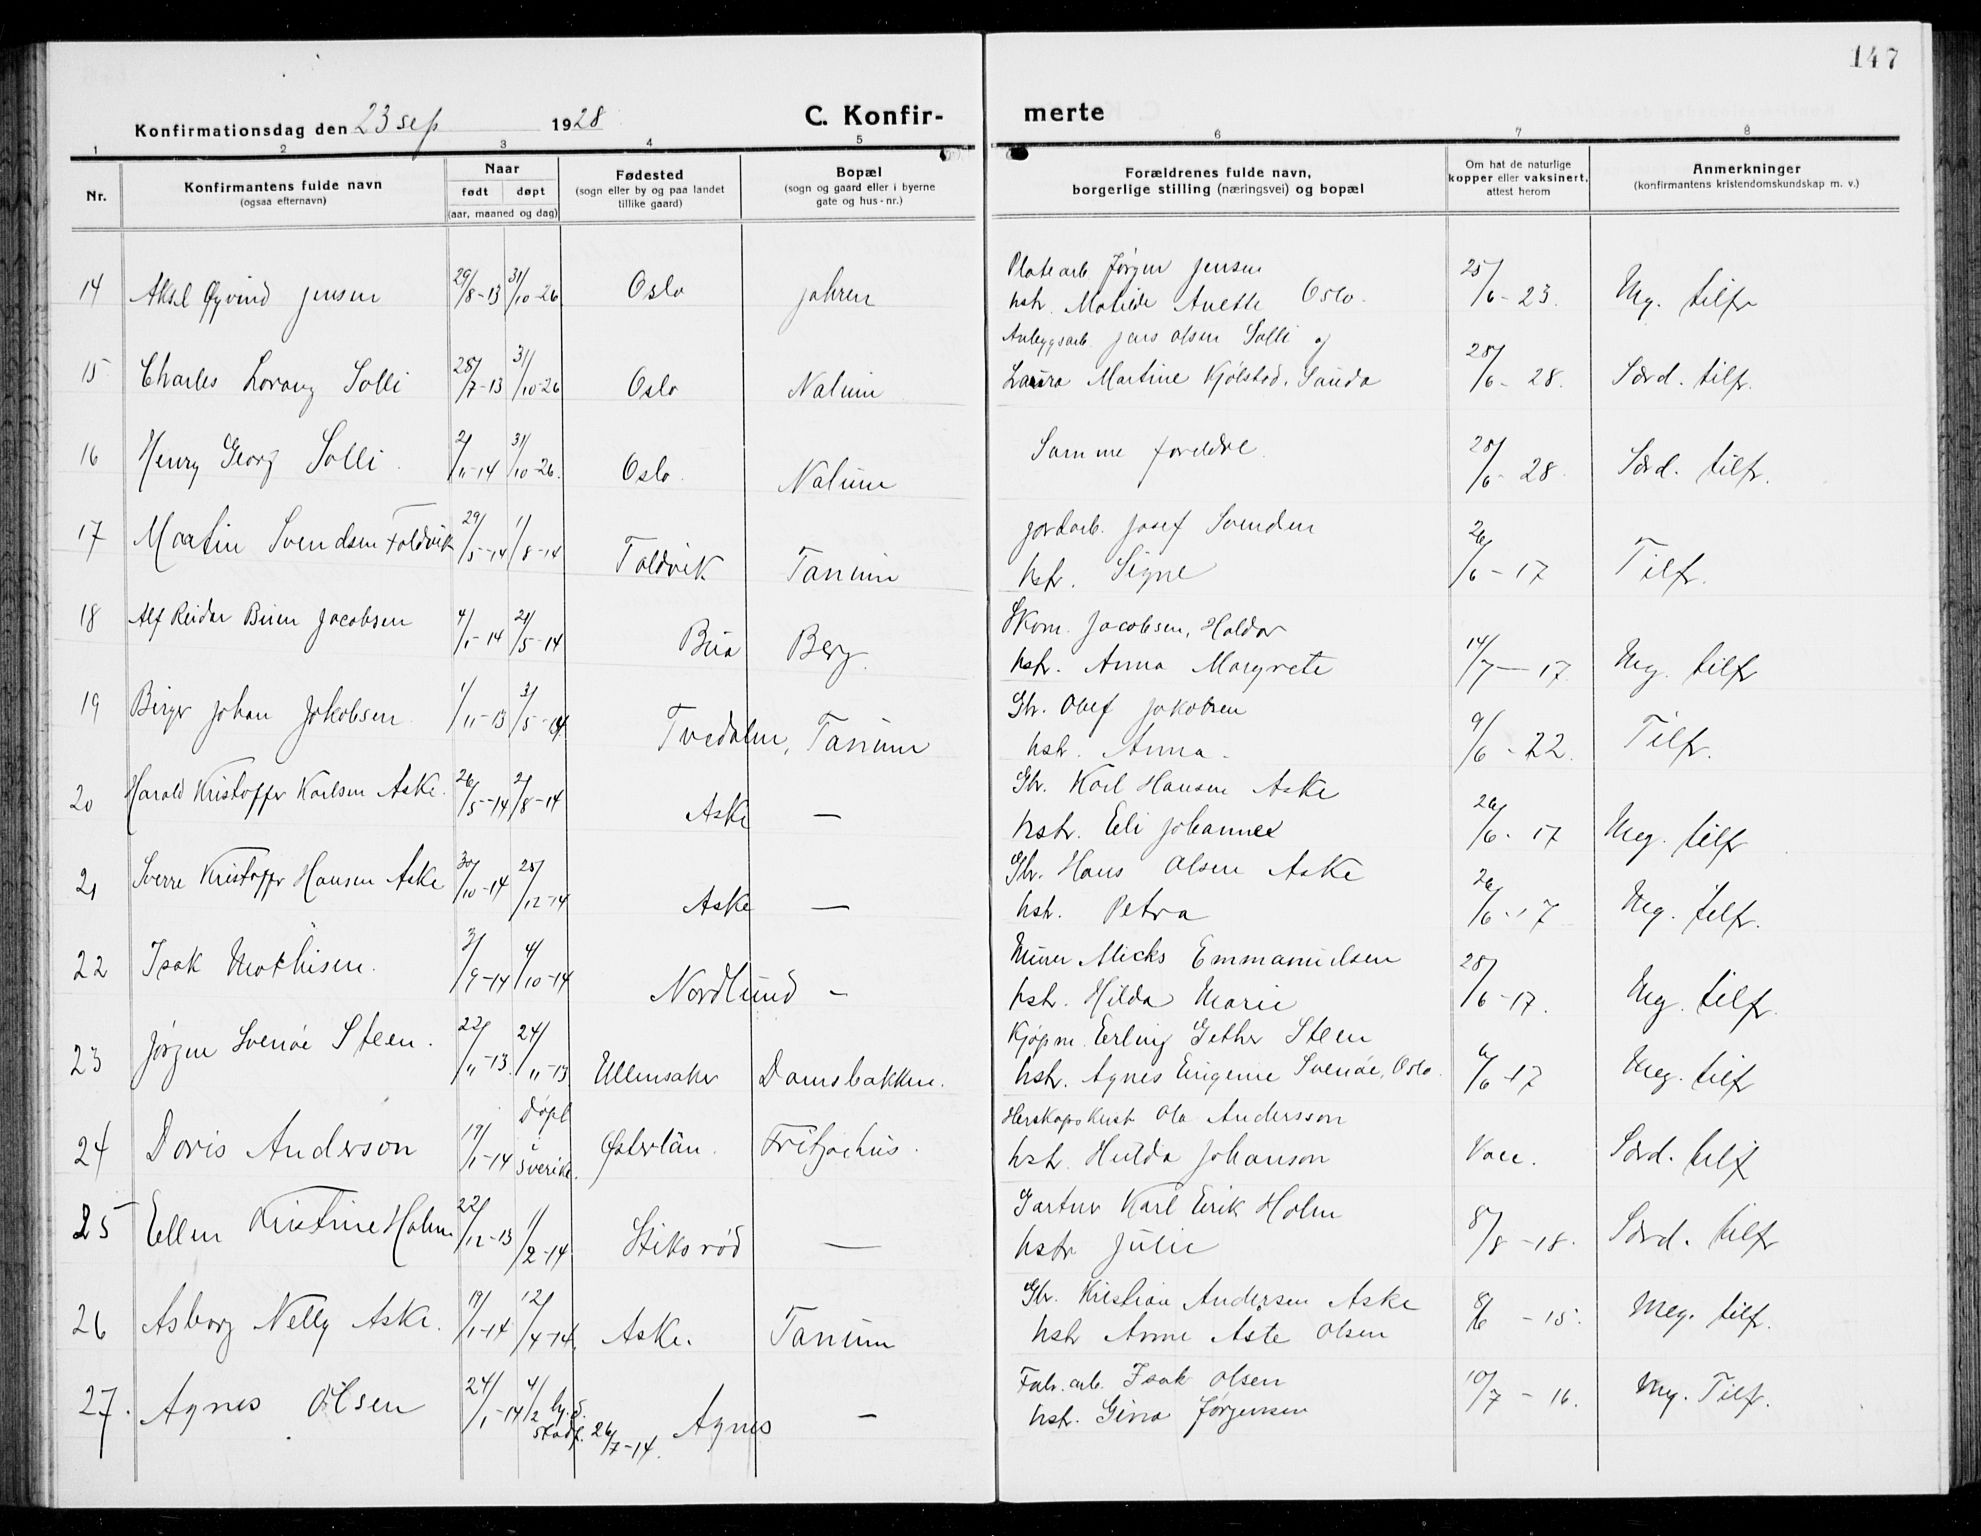 147
Konfirmationsdag den 23 sep 1928 C. Konfir- merte
1 2 3 4 5 6 7 8
Nr. Konfirmantens fulde navn (ogsaa efternavn) Naar født døpt (aar, maaned og dag) Fødested (sogn eller by og paa landet tillike gaard) Bopæl (sogn og gaard eller i byerne gate og hus-nr.) Forældrenes fulde navn, borgerlige stilling (næringsvei) og bopæl Om hat de naturlige kopper eller vaksinert, attest herom Anmerkninger (konfirmantens kristendomskundskap m. v.)
14 Aksel Øyvind Jensen 29/8-13 31/10-26 Oslo Jahren Platearb. Jørgen Jensen 25/6-23. Mg. tilfr
hstr. Matilde Anette Oslo.
15 Charles Lorang Solli 28/7-13 31/10-26 Oslo Nalum Anleggsarb. Jens Olsen Solli og 28/6-28. Særd. tilfr.
Laura Martine Kjølstad, Sauda
16 Henry Georg Solli. 2/11-14 31/10-26. Oslo. Nalum Samme foreldre. 28/6-28. Særd. tilfr.
17 Martin Svendsen Foldvik 29/5-14 1/8-14 Foldvik Tanum Jordarb. Josef Svendsen 26/6-17 Tilfr.
hstr. Signe
18 Alf Reidar Buen Jacobsen 4/1-14 21/5-14 Bua Berg. Skom. Jacobsen, Haldor 14/7-17. Mg. tilfr
hstr. Anna Margrete
19 Birger Johan Jakobsen. 1/11-13 3/5-14 Tvedalen, Tanum Gbr. Olaf Jakobsen 9/6-22. Tilfr.
hstr. Anna.
20 Harald Kristoffer Karlsen Aske. 26/5-14 2/8-14 Aske — Gbr. Karl Hansen Aske 26/6-17 Meg. tilfr
hstr. Eli Johannes
21 Sverre Kristoffer Hansen Aske 30/10-14 25/12-14 Aske — Gbr. Hans Olsen Aske 26/6-17 Mg. tilfr.
hstr. Petra
22 Isak Mathisen. 3/9-14 4/10-14 Nordlund - Murer Micks Emmanuelsen 28/6-17. Mg. tilfr.
hstr. Hilda Marie
23 Jørgen Svenøe Steen. 22/11-13 24/11-13 Ullensaker Damsbakken. Kjøpm. Erling Gether Steen 6/6-17 Meg. tilfr
hstr. Agnes Eugenie Svenøe, Oslo.
24 Doris Anderson 19/1-14 Døpt i Sverike. Østerlän. Fritzøehus. Herskapskusk Ola Andersson Vacc. Særd. tilf
hstr. Hulda Johanson
25 Ellen Kristine Holm 22/12-13 1/2-14 Stiksrød — Gartner Karl Erik Holm 8/8-18. Særd. tilfr
hstr Julie
26 Asborg Nelly Aske. 19/1-14 12/4-14. Aske. Tanum Gbr. Kristian Andersen Aske 8/6-15. Meg. tilfr.
hstr Anne Aste Olsen
27. Agnes Olsen 24/1-14 4/2 hj.d. stadf. 26/7-14. Agnes — Fabr.arb. Isak Olsen 10/7-16. Mg. Tilfr.
hstr. Gina Jørgensen